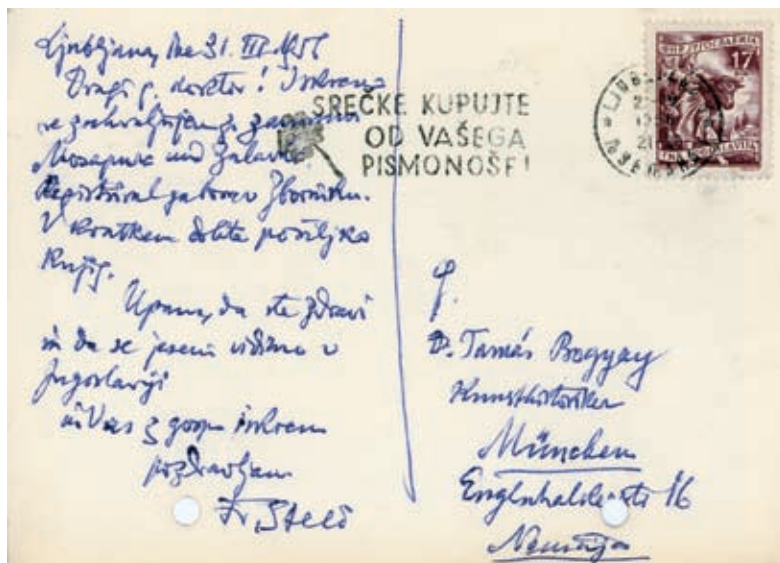 Ljubljana, dne 31. III 1956
Dragi g. doktor! Iskreno
se zahvaljujem za
Mosapurc und Zalavár.
Registriral ga bom v Zborniku.
V kratkem dobite pošiljko
knjig.
Upam, da ste zdravi
in da se jeseni vidimo v
Jugoslaviji
in Vas z gospo iskreno
pozdravljam
Fr. Stelè
SREČKE KUPUJTE
OD VAŠEGA
PISMONOŠE!
17
JUGOSLAVIJA
LJUBLJANA
G.
D. Tamás Bogyay
Kunsthistoriker
München
16
Nemčija